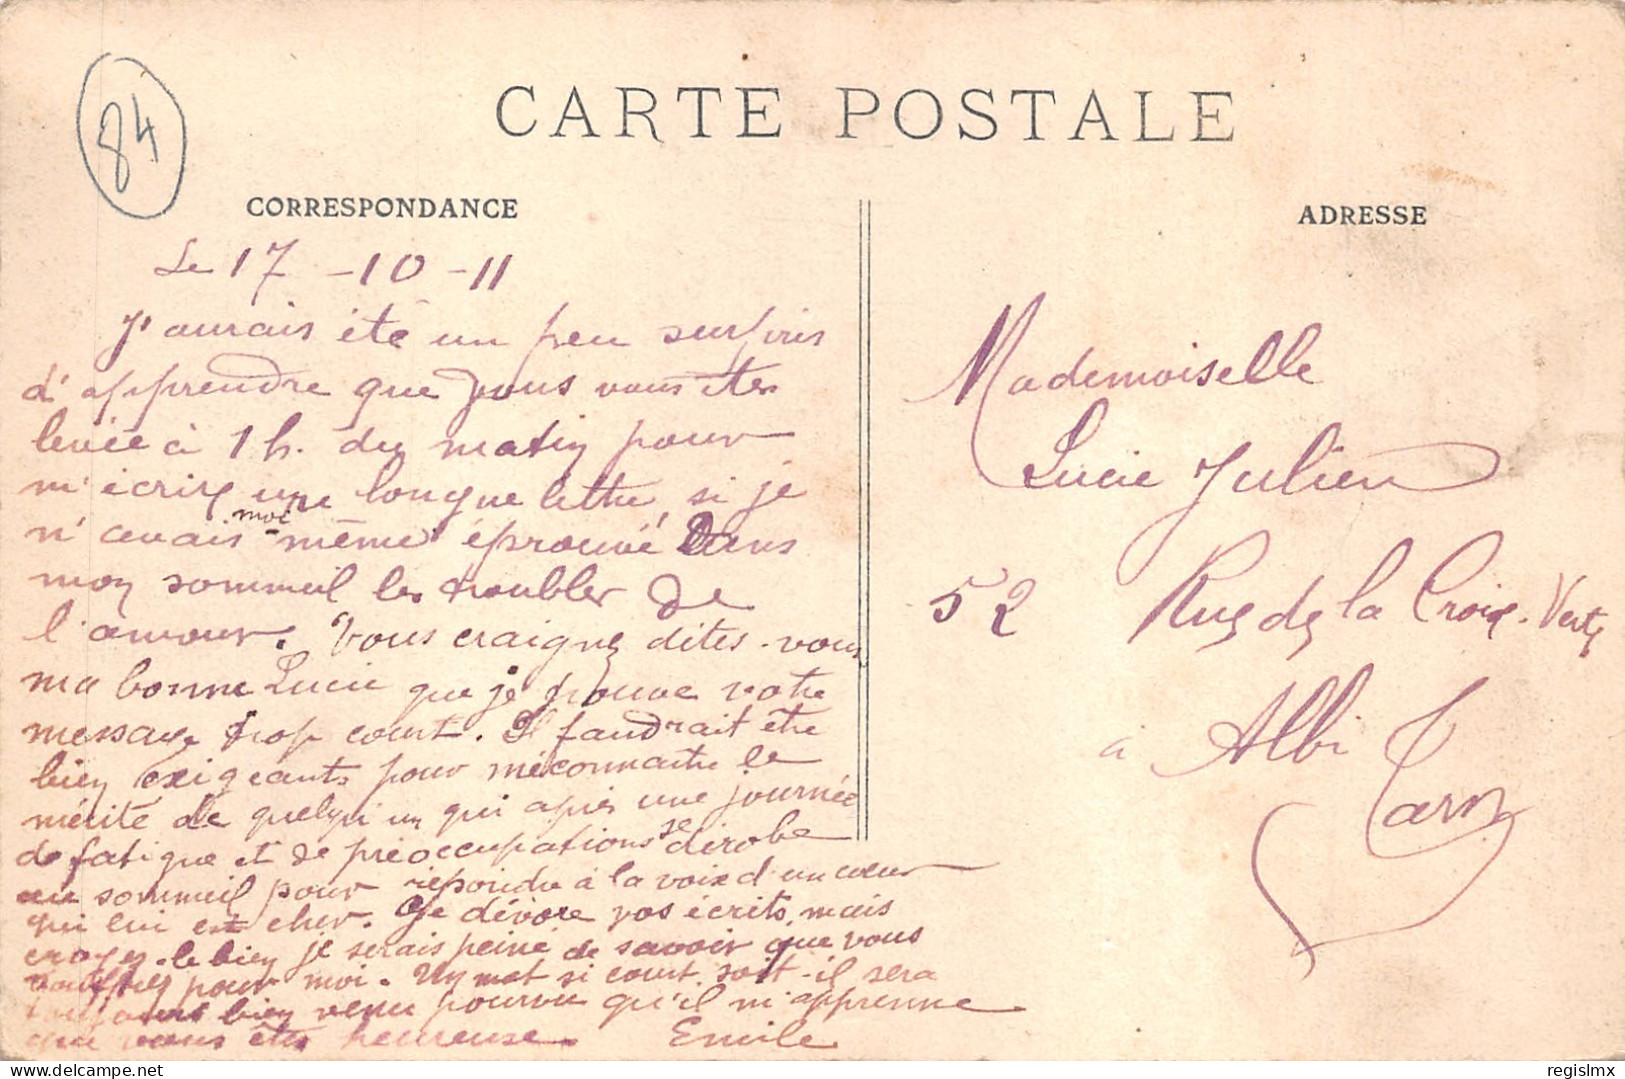 84
CARTE POSTALE
CORRESPONDANCE
Le 17 -10 -11
J'aurais été un peu surpris
d'apprendre que vous vous êtes
levée à 1 h. du matin pour
m'écrire une longue lettre, si je
n'avais moi-même éprouvé dans
mon sommeil les troubles de
l'amour. Vous craignez dites-vous
ma bonne Lucie que je trouve votre
message trop court. Il faudrait être
bien exigeants pour méconnaitre le
mérite de quelqu'un qui après une journée
de fatigue et de préoccupations se dérobe
au sommeil pour répondre à la voix d'un cœur
qui lui est cher. Je dévore vos écrits, mais
croyez-le bien je serais peiné de savoir que vous
souffrez pour moi. Un mot si court soit-il sera
toujours bien venu pourvu qu'il m'apprenne
que vous êtes heureuse. Emile
ADRESSE
Mademoiselle
Lucie Julien
52 Rue de la Croix-Verte
à Albi
Tarn
regislmx